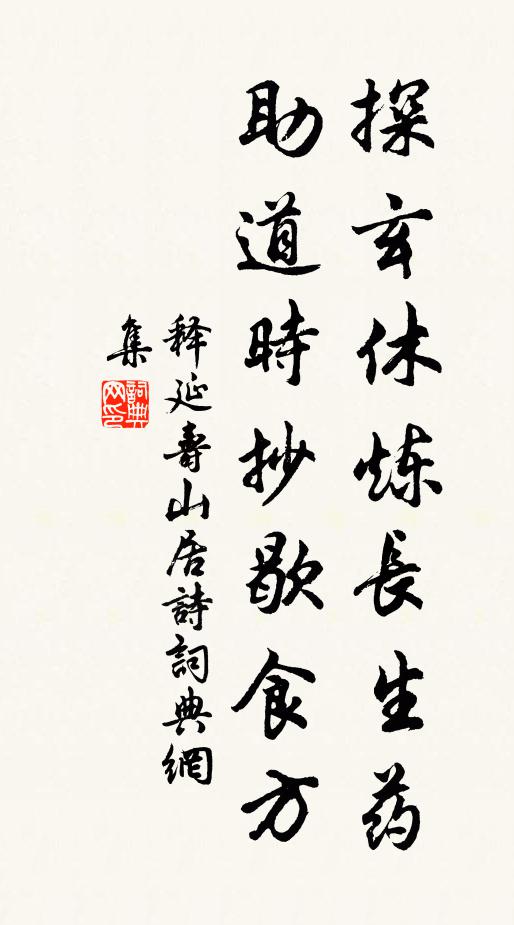 探玄休炼長生药
助道時抄歇食方
释延壽山居詩詞典網
集
詞典
网印